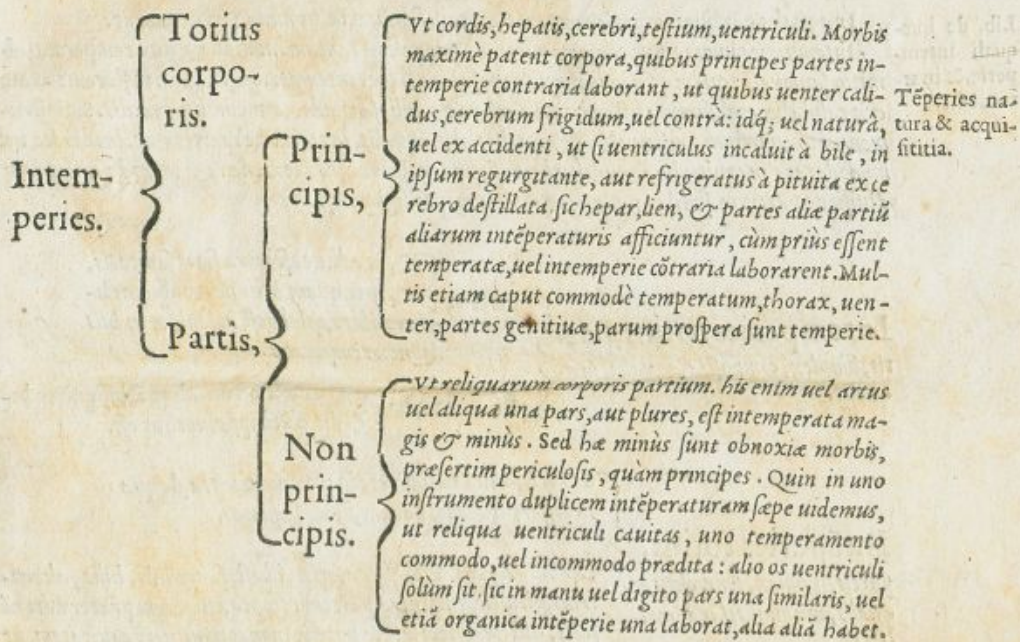 Intem-
peries.
Totius
corpo-
ris.
Partis,
Prin-
cipis,
Vt cordis, hepatis, cerebri, testium, uentriculi. Morbis
maximè patent corpora, quibus principes partes in-
temperie contraria laborant, ut quibus uenter cali-
dus, cerebrum frigidum, uel contrà: idq́; uel naturâ,
uel ex accidenti, ut si uentriculus incaluit à bile, in
ipsum regurgitante, aut refrigeratus à pituita ex ce
rebro destillata sic hepar, lien, & partes aliæ partiū
aliarum intēperaturis afficiuntur, cùm priùs essent
temperatæ, uel intemperie cōtraria laborarent. Mul-
tis etiam caput commodè temperatum, thorax, uen-
ter, partes genitiuæ, parum prospera sunt temperie.
Tēperies na-
tura & acqui-
sititia.
Non
prin-
cipis.
Vt reliquarum corporis partium. his enim uel artus
uel aliqua una pars, aut plures, est intemperata ma-
gis & minùs. Sed hæ minùs sunt obnoxiæ morbis,
præsertim periculosis, quàm principes. Quin in uno
instrumento duplicem intēperaturam sæpe uidemus,
ut reliqua uentriculi cauitas, uno temperamento
commodo, uel incommodo prædita: alio os uentriculi
solùm sit. sic in manu uel digito pars una similaris, uel
etiā organica intēperie una laborat, alia aliā habet.